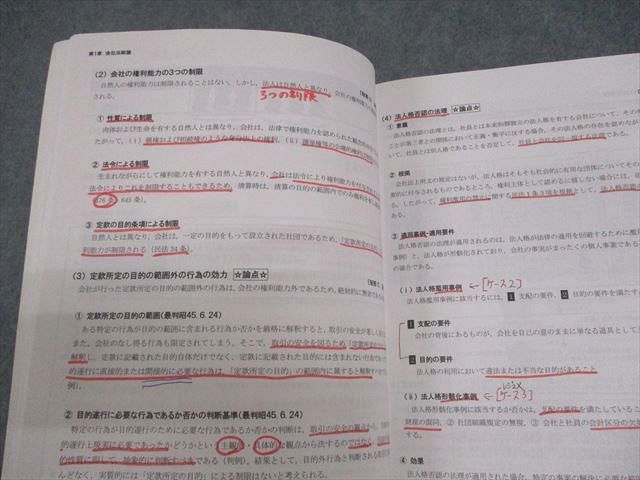 第1章 会社法総論
(2) 会社の権利能力の3つの制限
自然人の権利能力は制限されることはない。しかし、法人は自然人と異なり、会社の権利
3つの制限
される。
① 性質による制限
肉体および生命を有する自然人とは異なり、会社は、法律で権利能力を認められた
② 法令による制限
生まれながらにして権利能力を有する自然人と異なり、会社は法令により権利能力を付与
法令によりこれを制限することもできるため、清算時は、清算の目的の範囲内でのみ権利を
(476条、645条)。
③ 定款の目的条項による制限
自然人とは異なり、会社は、一定の目的をもって設立された社団であるため、「定款所定の
利能力が制限される（民法34条）。
(3) 定款所定の目的の範囲外の行為の効力 ☆論点☆
会社が行った定款所定の目的の範囲外の行為は、会社の権利能力外であるため、絶対的に無効
① 定款所定の目的の範囲(最判昭45.6.24)
ある特定の行為が目的の範囲に含まれる行為か否かを厳格に解釈すると、取引の安全が
また、会社のなし得る行為も限定されてしまう。そこで、取引の安全を図るため
解釈し、定款に記載された目的自体だけでなく、定款に記載された目的には含まれない行為
的遂行に直接的または間接的に必要な行為は、「定款所定の目的」の範囲内に属すると解釈
例)。
② 目的遂行に必要な行為であるか否かの判断基準(最判昭45.6.24)
特定の行為が目的の遂行のために必要な行為であるか否かは、取引の安全の観点から、
的遂行上現実に必要であったかどうかという主観的・具体的な観点から決するのではなく、
的性質に即して、抽象的に判断すべきである（判例）。結果として、目的外行為と判断される
んどなく、実質的には「定款の目的による制限はないと考えられる。
(4) 法人格否認の法理 ☆論点☆
① 意義
法人格否認の法理とは、社員とは本来別個独立の法人格を有する会社について、その
ことが第三者との関係において正義・衡平に反する場合、その法人格の存在を認めなが
いて、社員とは別人格であることを否定して、社員と会社を同一視する法理である。
② 根拠
会社法上明文の規定はないが、法人格はそもそも社会的に有用な団体についてその
策的に付与されたものであるところ、権利主体として認めるに値しない場合には、
た。したがって、権利濫用の禁止に関する民法1条3項を根拠として、
③ 適用事例・適用要件
法人格否認の法理が適用されるのは、法人格が法律の適用を回避するために濫用
例)と、法人格が形骸化されており、会社の事実がまったくの個人事業である
の場合である。
(ⅰ) 法人格濫用事例 ←[ケース2]
法人格濫用事例に該当するには、1 支配の要件、2 目的の要件を満たす
1 支配の要件
会社の背後にあるものが、会社を自己の意のままに単なる道具として
2 目的の要件
法人格の利用において違法または不当な目的があること
(ⅱ) 法人格形骸化事例 ←[ケース3]
法人格形骸化事例に該当するか否かは、支配の要件を満たしている
財産の混同、② 社団組織規定の無視、③ 会社と社員の会計区分の欠如
④ 効果
法人格否認の法理が適用された場合、特定の事案の解決に必要な範囲